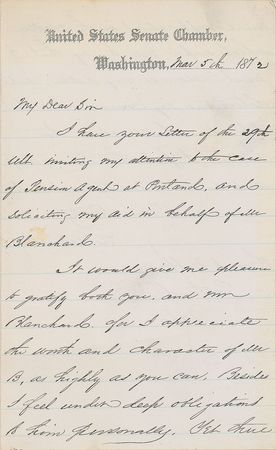 United States Senate Chamber,
Washington, Mar 5th 1872
My Dear Sir
I have your Letter of the 29th
ult inviting my attention to the case
of Pension Agent at Portland, and
soliciting my aid in behalf of Mr
Blanchard.
It would give me pleasure
to gratify both you, and Mr
Blanchard for I appreciate
the worth and character of Mr
B, as highly as you can. Besides
I feel under deep obligations
to him personally. Yet there